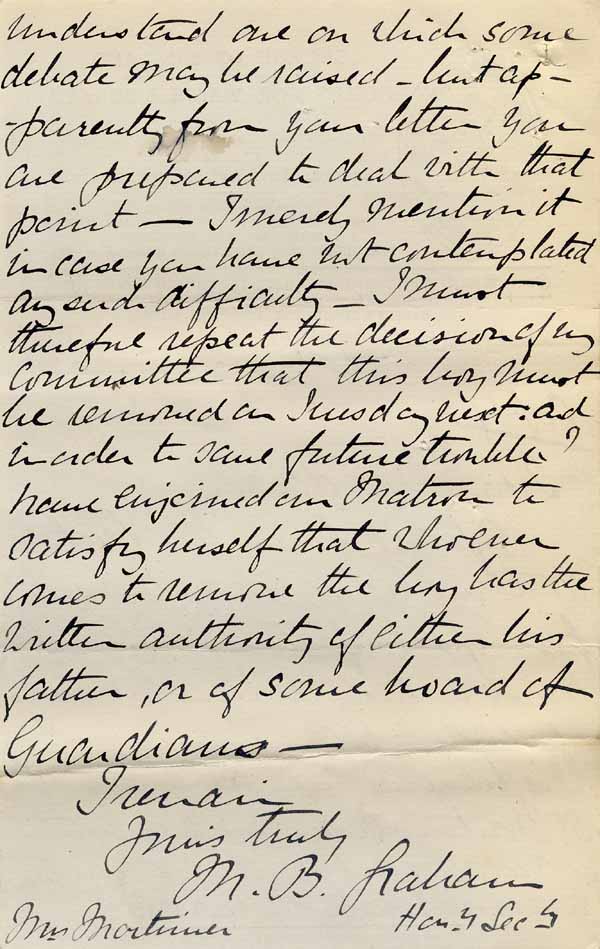 understand one on which some
debate may be raised - but ap-
-parently from your letter you
are prepared to deal with that
point — I merely mention it
in case you have not contemplated
any such difficulty — I must
therefore repeat the decision of my
Committee that this boy must
be removed on Tuesday next: and
in order to save future trouble I
have enjoined our Matron to
satisfy herself that whoever
comes to remove the boy has the
written authority of either his
father, or of some board of
Guardians —
I remain
Yours truly
M. B. Graham
Mrs Mortimer Hon.y Sec.y